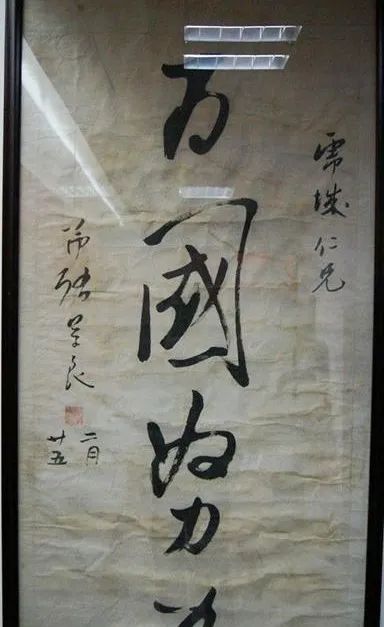 虎城仁兄
为國努力
弟張學良
二月
廿五